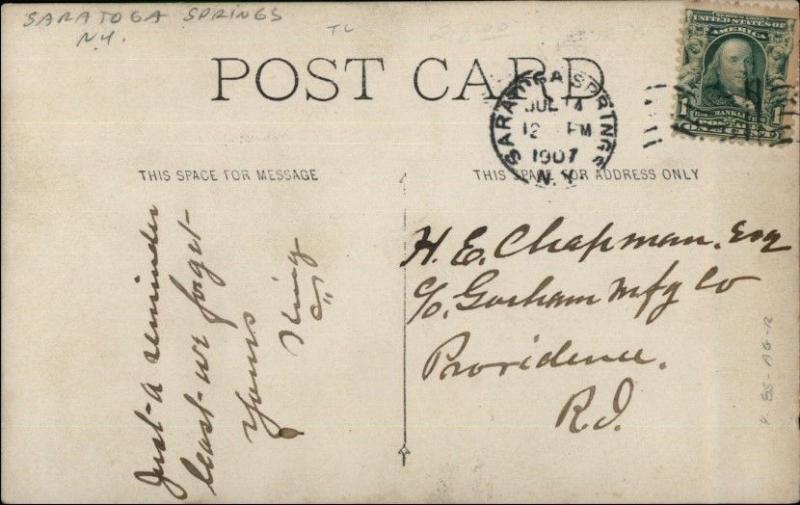 SARATOGA SPRINGS
N.Y.
TL
POST CARD
SARATOGA SPRINGS
JUL 14
12 PM
1907
N.Y.
UNITED STATES OF
AMERICA
1
FRANKLIN
ONE CENT
THIS SPACE FOR MESSAGE
THIS SPACE FOR ADDRESS ONLY
Just-a reminder
least-we forget-
Yours
King
H. E. Chapman, Esq
c/o Gorham Mfg Co
Providence.
R.I.